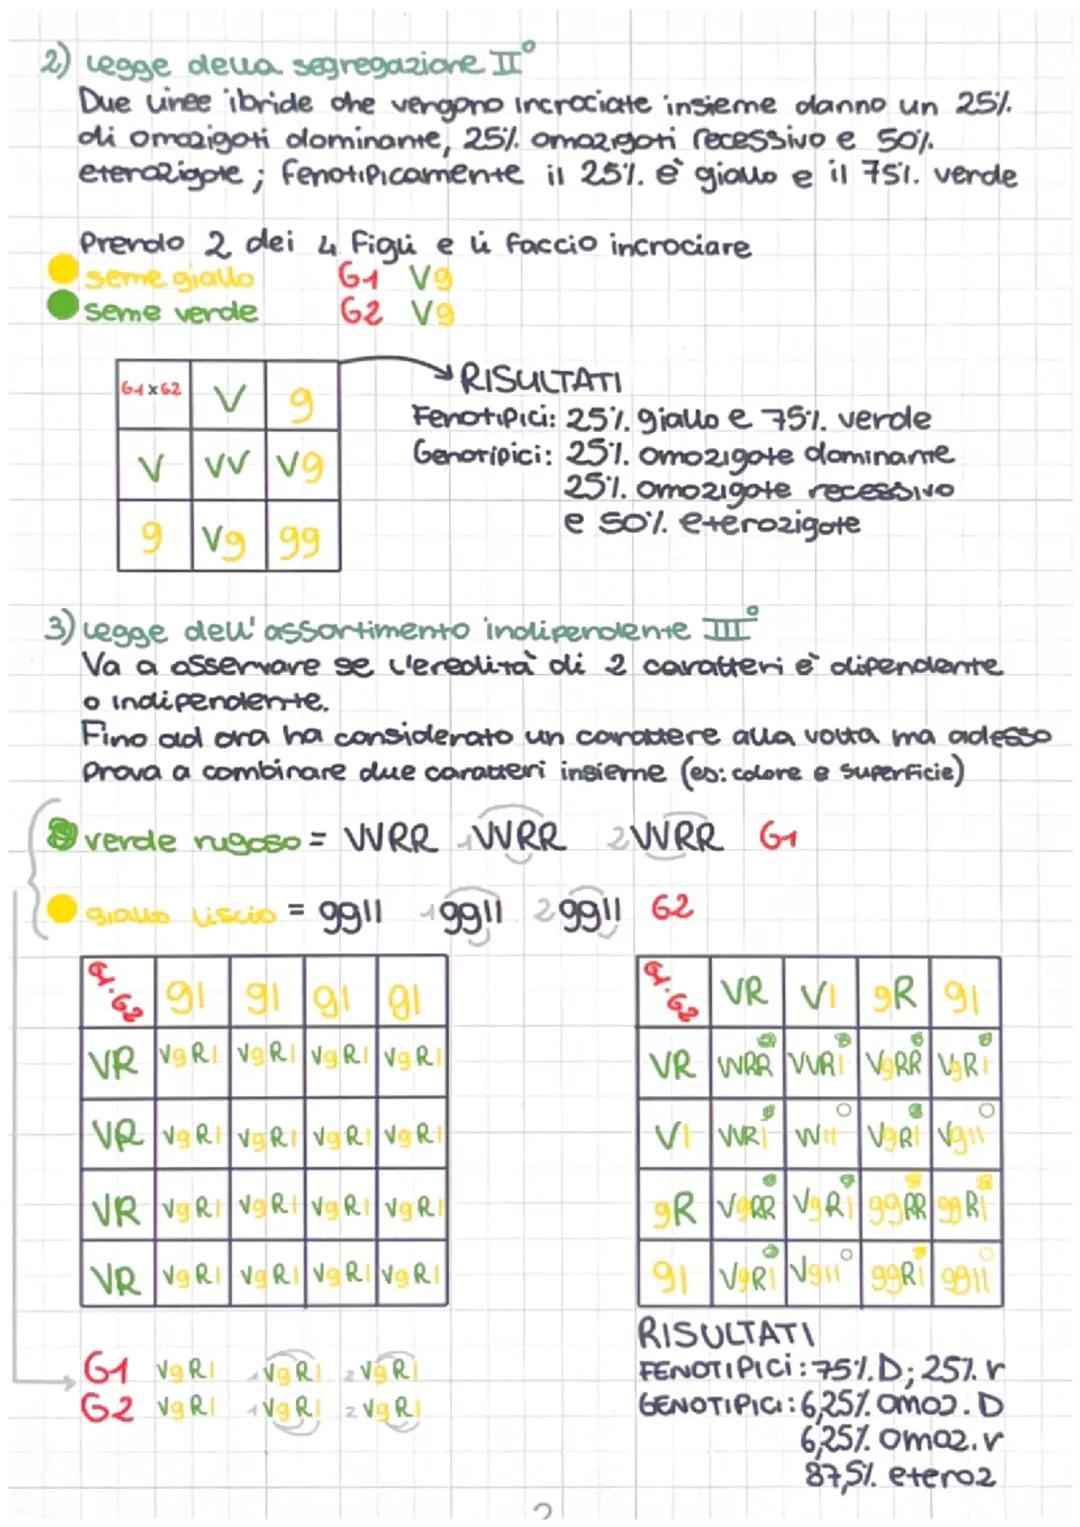 2) Legge della segregazione II°
Due linee ibride che vengono incrociate insieme danno un 25%
di omozigoti dominante, 25% omozigoti recessivo e 50%
eterozigote; fenotipicamente il 25% è giallo e il 75% verde
Prendo 2 dei 4 figli e li faccio incrociare
seme giallo G1 Vg
seme verde G2 Vg
G1xG2 V g
V VV Vg
g Vg gg
RISULTATI
Fenotipici: 25% giallo e 75% verde
Genotipici: 25% omozigote dominante
25% omozigote recessivo
e 50% eterozigote
3) Legge dell'assortimento indipendente III°
Va a osservare se l'eredità di 2 caratteri è dipendente
o indipendente.
Fino ad ora ha considerato un carattere alla volta ma adesso
prova a combinare due caratteri insieme (es: colore e superficie)
verde rugoso = VVRR 1VVRR 2VVRR G1
giallo liscio = ggll 1ggll 2ggll G2
G1·G2 gl gl gl gl
VR VgRl VgRl VgRl VgRl
VR VgRl VgRl VgRl VgRl
VR VgRl VgRl VgRl VgRl
VR VgRl VgRl VgRl VgRl
G1 VgRl 1VgRl 2VgRl
G2 VgRl 1VgRl 2VgRl
G1·G2 VR Vl gR gl
VR VVRR VVRl VgRR VgRl
Vl VVRl VVll VgRl Vgll
gR VgRR VgRl ggRR ggRl
gl VgRl Vgll ggRl ggll
RISULTATI
FENOTIPICI: 75% D; 25% r
GENOTIPICI: 6,25% omoz. D
6,25% omoz. r
87,5% eteroz
2